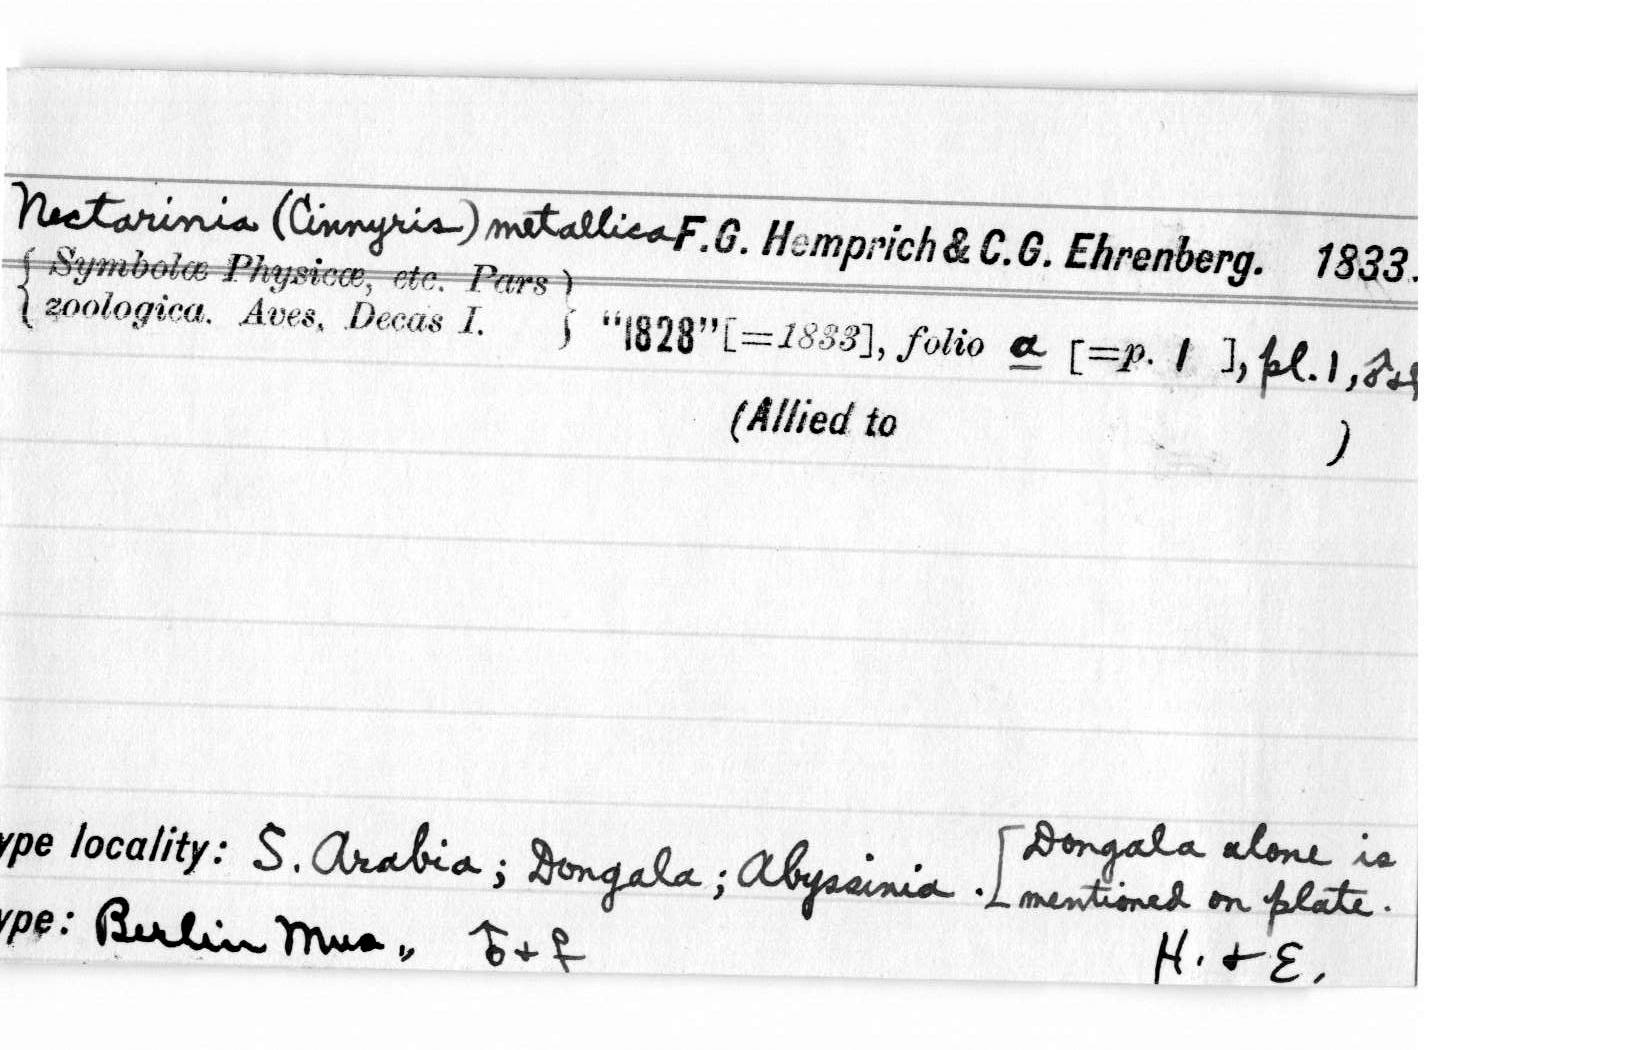 Nectarinia (Cinnyris) metallica F.G. Hemprich & C.G. Ehrenberg. 1833.
{ Symbolæ Physicæ, etc. Pars
zoologica. Aves, Decas I. } "1828" [=1833], folio a [=p. 1 ], pl. 1, ♂+♀
(Allied to )
ype locality: S. Arabia; Dongala; Abyssinia. [Dongala alone is
mentioned on plate.
ype: Berlin Mus., ♂+♀ H. + E.